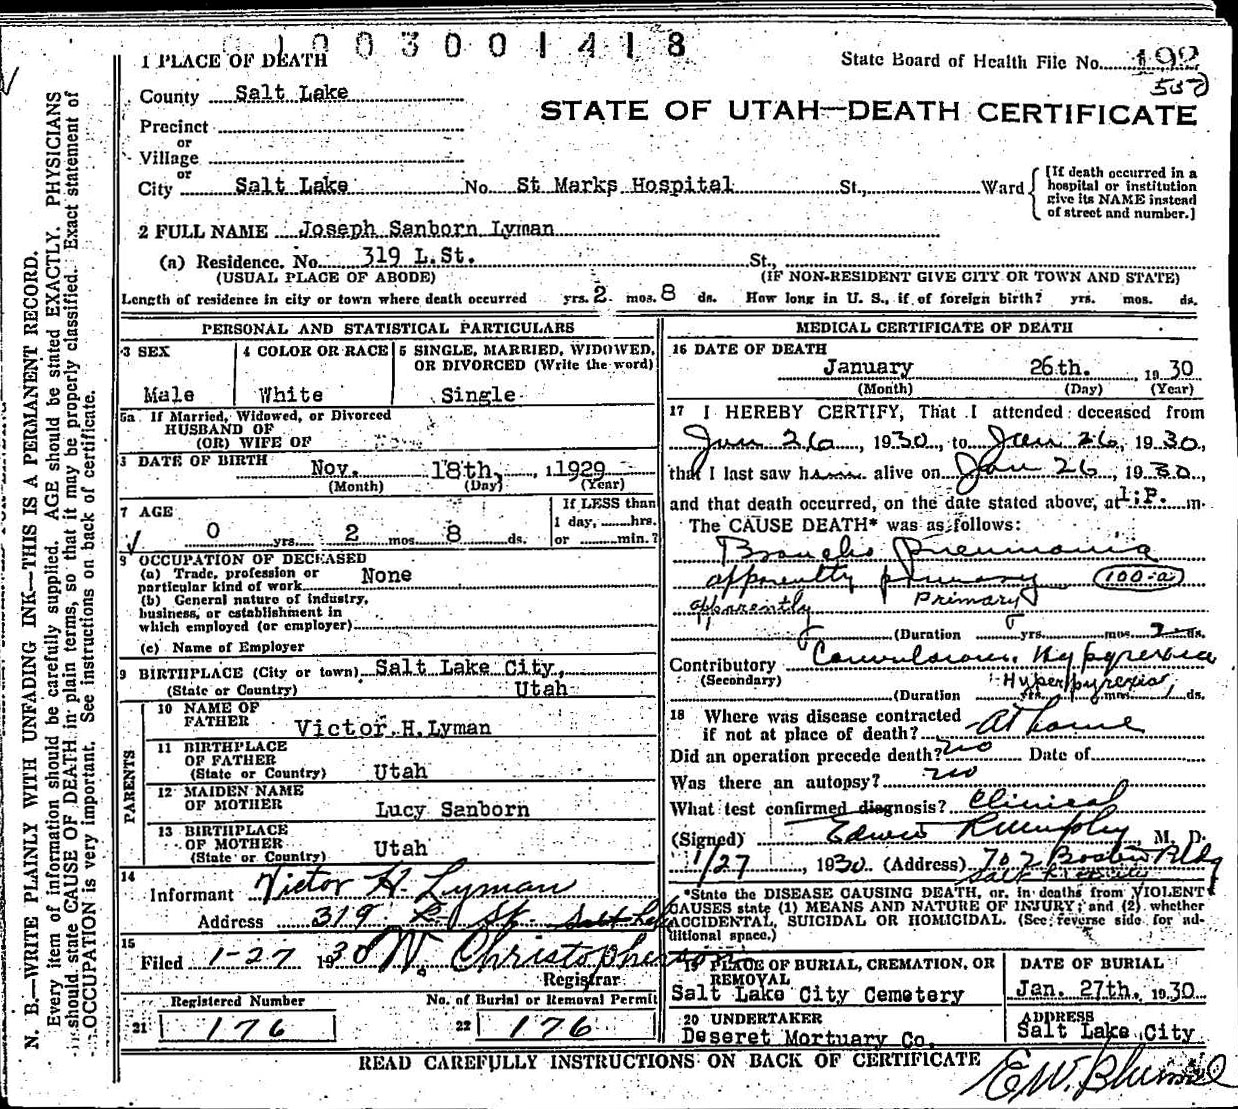 01003001418
1 PLACE OF DEATH
State Board of Health File No. 192
County Salt Lake
STATE OF UTAH—DEATH CERTIFICATE
Precinct
or
Village
or
City Salt Lake No. St Marks Hospital St., Ward
[If death occurred in a
hospital or institution
give its NAME instead
of street and number.]
2 FULL NAME Joseph Sanborn Lyman
(a) Residence. No. 319 L.St. St.,
(USUAL PLACE OF ABODE) (IF NON-RESIDENT GIVE CITY OR TOWN AND STATE)
Length of residence in city or town where death occurred yrs. 2 mos. 8 ds. How long in U. S., if of foreign birth? yrs. mos. ds.
PERSONAL AND STATISTICAL PARTICULARS
3 SEX
Male
4 COLOR OR RACE
White
5 SINGLE, MARRIED, WIDOWED,
OR DIVORCED (Write the word)
Single
5a If Married, Widowed, or Divorced
HUSBAND OF
(OR) WIFE OF
DATE OF BIRTH Nov. 18th, 1929
(Month) (Day) (Year)
7 AGE
0 yrs. 2 mos. 8 ds.
If LESS than
1 day, hrs.
or min.?
OCCUPATION OF DECEASED
(a) Trade, profession or
particular kind of work None
(b) General nature of industry,
business, or establishment in
which employed (or employer)
(c) Name of Employer
9 BIRTHPLACE (City or town), Salt Lake City,
(State or Country) Utah
PARENTS
10 NAME OF
FATHER Victor H. Lyman
11 BIRTHPLACE
OF FATHER
(State or Country) Utah
12 MAIDEN NAME
OF MOTHER Lucy Sanborn
13 BIRTHPLACE
OF MOTHER
(State or Country) Utah
14
Informant Victor H. Lyman
Address 319 L St. Salt Lake
15
Filed 1-27 1930 W. Christopherson
Registrar
Registered Number
21 176
No. of Burial or Removal Permit
22 176
MEDICAL CERTIFICATE OF DEATH
16 DATE OF DEATH
January 26th. 1930
(Month) (Day) (Year)
17 I HEREBY CERTIFY, That I attended deceased from
Jan 26, 1930, to Jan 26, 1930,
that I last saw him alive on Jan 26, 1930,
and that death occurred, on the date stated above, at 1:P. m.
The CAUSE DEATH* was as follows:
Broncho Pneumonia
apparently primary 100-a
apparently Primary
(Duration yrs. mos. 2 ds.
Contributory Convulsions. Hypyrexia
(Secondary) Hyperpyrexia,
(Duration yrs. mos. ds.
18 Where was disease contracted
if not at place of death? At home
Did an operation precede death? no Date of
Was there an autopsy? no
What test confirmed diagnosis? Clinical
(Signed) Edwin R. Murphy M. D.
1/27, 1930. (Address) 702 Boston Bldg
*State the DISEASE CAUSING DEATH, or, in deaths from VIOLENT
CAUSES state (1) MEANS AND NATURE OF INJURY; and (2) whether
ACCIDENTAL, SUICIDAL OR HOMICIDAL. (See reverse side for ad-
ditional space.)
19 PLACE OF BURIAL, CREMATION, OR
REMOVAL
Salt Lake City Cemetery
DATE OF BURIAL
Jan. 27th. 1930
20 UNDERTAKER
Deseret Mortuary Co.
ADDRESS
Salt Lake City
READ CAREFULLY INSTRUCTIONS ON BACK OF CERTIFICATE
N. B.—WRITE PLAINLY WITH UNFADING INK—THIS IS A PERMANENT RECORD.
Every item of information should be carefully supplied. AGE should be stated EXACTLY. PHYSICIANS
should state CAUSE OF DEATH in plain terms, so that it may be properly classified. Exact statement of
OCCUPATION is very important. See instructions on back of certificate.